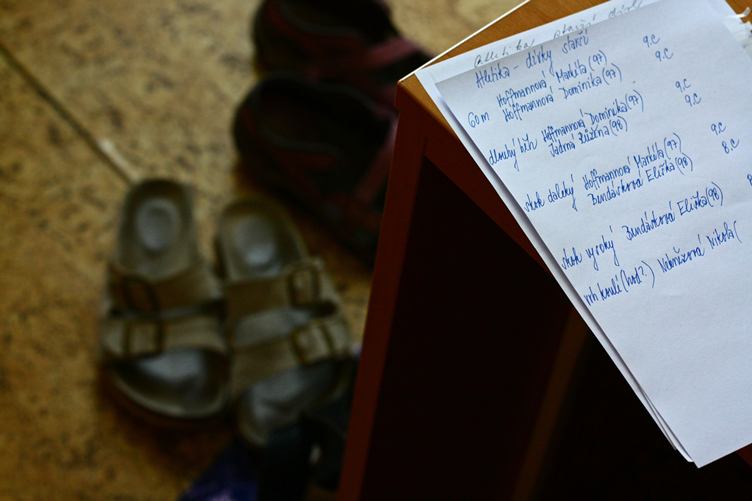 Atletika - dívky starší
Hoffmannová Markéta (97) 9.C
60m Hoffmannová Dominika (97) 9.C
dlouhý běh Hoffmannová Dominika (97) 9.C
Jádrná Růžena (98) 9.C
skok daleký Hoffmannová Markéta (97) 9.C
Bundárková Eliška (98) 8.C
skok vysoký Bundárková Eliška (98) 8
vrh koulí (hod?) Nikola (